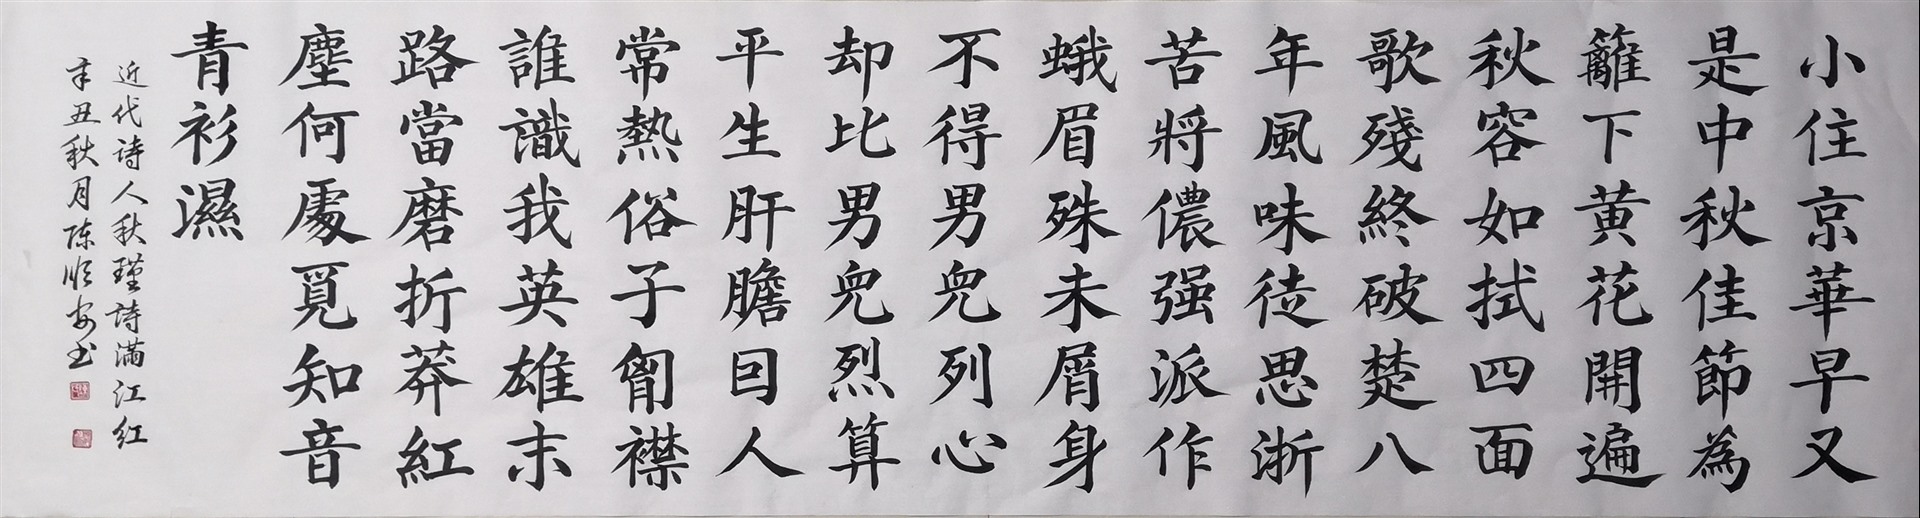 小住京華早又
是中秋佳節為
籬下黄花開遍
秋容如拭四面
歌殘終破楚八
年風味徒思浙
苦將儂强派作
蛾眉殊未屑身
不得男兒列心
却比男兒烈算
平生肝膽囙人
常熱俗子胷襟
誰識我英雄末
路當磨折莽紅
塵何處覓知音
青衫濕
近代诗人秋瑾诗满江红
辛丑秋月陈顺安书